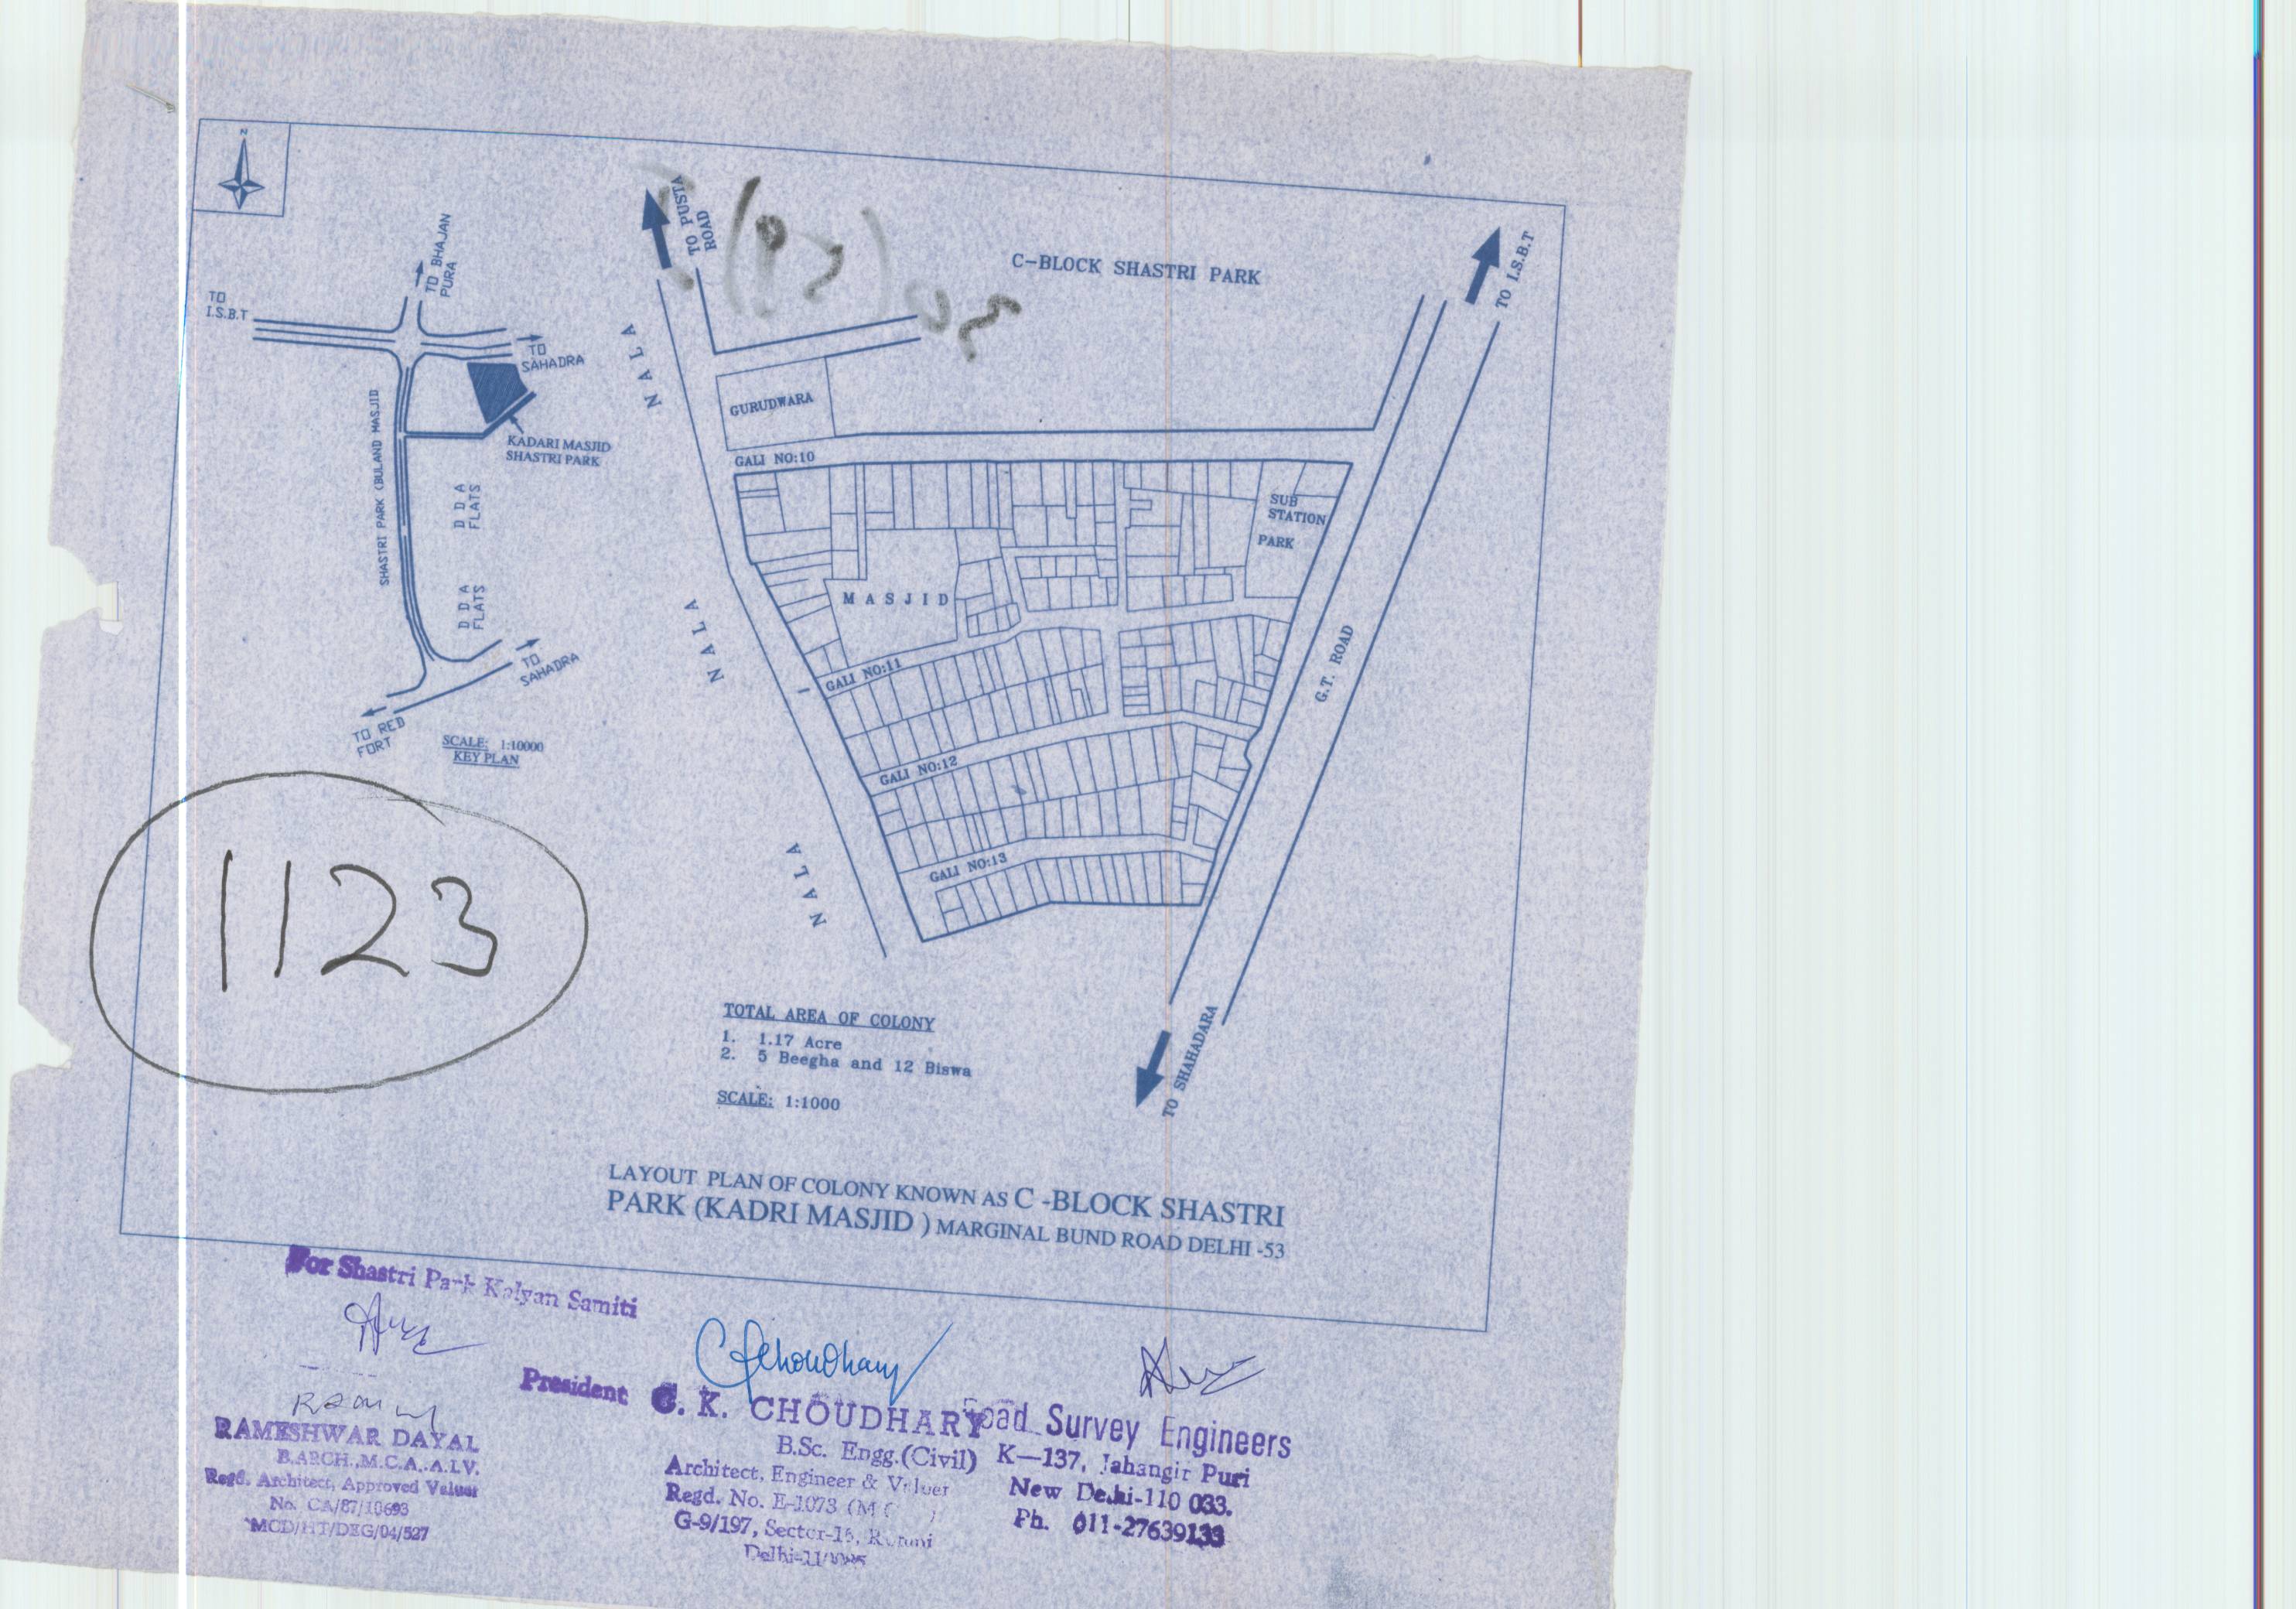 N
TO PUSTA
ROAD
C-BLOCK SHASTRI PARK
TO I.S.B.T
TO BHAJAN
PURA
TO
I.S.B.T
TO
SAHADRA
NALA
GURUDWARA
SHASTRI PARK (BULAND MASJID
KADARI MASJID
SHASTRI PARK
GALI NO:10
D D A
FLATS
SUB
STATION
PARK
MASJID
D D A
FLATS
NALA
G.T. ROAD
TO
SAHADRA
GALI NO:11
TO RED
FORT
SCALE: 1:10000
KEY PLAN
GALI NO:12
1123
NALA
GALI NO:13
TOTAL AREA OF COLONY
1. 1.17 Acre
2. 5 Beegha and 12 Biswa
SCALE: 1:1000
TO SHAHADARA
LAYOUT PLAN OF COLONY KNOWN AS C -BLOCK SHASTRI
PARK (KADRI MASJID ) MARGINAL BUND ROAD DELHI -53
For Shastri Park Kalyan Samiti
President
RAMESHWAR DAYAL
B.ARCH.,M.C.A.,A.I.V.
Regd. Architect, Approved Valuer
No. CA/87/10693
MCD/HT/DEG/04/527
Choudhary
C. K. CHOUDHARY
B.Sc. Engg.(Civil)
Architect, Engineer & Valuer
Regd. No. E-1073
G-9/197, Sector-15, Rohini
Road Survey Engineers
K—137, Jahangir Puri
New Delhi-110 033.
Ph. 011-27639133